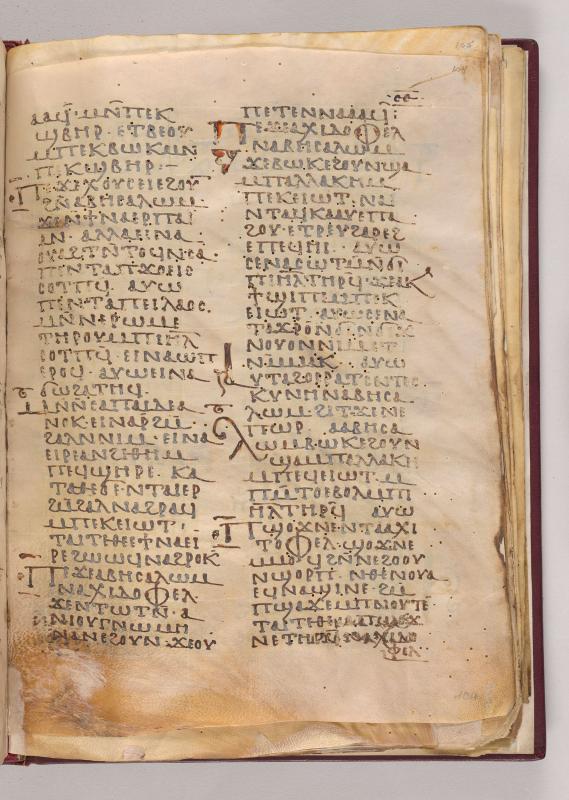 ⲁⲁϥ· ⲙⲛ̄ⲡⲉⲕ
ϣⲃⲏⲣ· ⲉⲧⲃⲉⲟⲩ
ⲙⲡⲉⲕⲃⲱⲕ ⲙⲛ
ⲡⲕϣⲃⲏⲣ·
ⲡⲉϫⲉⲭⲟⲩⲥⲉⲓ ⲉϩⲟⲩ
ⲛ̄ⲁⲃⲏⲥⲁⲗⲱⲙ
ϫⲉⲛϯⲛⲁⲉⲣⲡⲁⲓ
ⲁⲛ· ⲁⲗⲗⲁⲉⲓⲛⲁ
ⲟⲩⲁϩⲧ ⲛ̄ⲧⲟϥ ⲛⲥⲁ
ⲡⲉⲛⲧⲁⲡϫⲟⲉⲓⲥ
ⲥⲟⲧⲡϥ ⲁⲩⲱ
ⲡⲉⲛⲧⲁⲡⲉⲓⲗⲁⲟⲥ
ⲙⲛ̄ⲛⲉⲣⲱⲙⲉ
ⲧⲏⲣⲟⲩ ⲙⲡⲓⲏⲗ
ⲥⲟⲧⲡϥ· ⲉⲓⲛⲁϣⲱⲡ
ⲉⲣⲟϥ· ⲁⲩⲱⲉⲓⲛⲁ
ϭⲱϩⲁⲧⲏϥ
ⲙⲛ̄ⲛⲥⲁⲡⲁⲓ ⲇⲉ ⲁ
ⲛⲟⲕ ⲉⲓⲛⲁⲣϩⲙ
ϩⲁⲗ ⲛⲛⲓⲙ· ⲉⲓⲛⲁ
ⲉⲓⲣⲉ ⲁⲛ ϩⲓⲑⲏ ⲙ
ⲡⲉϥϣⲏⲣⲉ· ⲕⲁ
ⲧⲁⲑⲉ ⲉⲛⲧⲁⲓⲉⲣ
ϩⲙϩⲁⲗ ⲛⲁϩⲣⲁϥ
ⲙⲡⲉⲕⲉⲓⲱⲧ·
ⲧⲁⲓ ⲧⲉ ⲑⲉ ⲉϯⲛⲁⲉⲓ
ⲣⲉ ϩⲱⲱϥ ⲛⲁϩⲣⲟⲕ
ⲡⲉϫⲉⲁⲃⲏⲥⲁⲗⲱⲙ
ⲛⲁⲭⲓⲧⲟⲫⲉⲗ·
ϫⲉⲛⲧⲱⲧⲛ· ⲁ
ⲛⲓⲟⲩⲅⲛⲱⲙⲏ
ⲛⲁⲛ ⲉϩⲟⲩⲛ· ϫⲉⲟⲩ
ⲟⲉ
ⲡⲉⲧⲉⲛⲛⲁⲁⲁϥ:
ⲡⲉϫⲉⲁⲭⲓⲧⲟⲫⲉⲗ
ⲛⲁⲃⲏⲥⲁⲗⲱⲙ
ϫⲉⲃⲱⲕ ⲉϩⲟⲩⲛ ϣⲁ
ⲙⲡⲁⲗⲗⲁⲕⲏ ⲙ
ⲡⲉⲕⲉⲓⲱⲧ· ⲛⲁⲓ
ⲛⲧⲁϥⲕⲁⲁⲩ ⲉⲡⲁ
ϩⲟⲩ ⲉⲧⲣⲉⲩϩⲁⲣⲉϩ
ⲉⲡⲉϥⲏⲓ· ⲁⲩⲱ
ⲥⲉⲛⲁⲥⲱⲧⲙ ⲛϭⲓ
ⲡⲓⲏⲗ ⲧⲏⲣϥ ϫⲉⲁⲕ
ϯϣⲓⲡⲉ ⲙⲡⲉⲕ
ⲉⲓⲱⲧ· ⲁⲩⲱ ⲥⲉⲛⲁ
ⲧⲁϫⲣⲟ ⲛϭⲓ ⲛϭⲓϫ
ⲛⲟⲩⲟⲛ ⲛⲓⲙ ⲉⲧ
ⲛⲙⲙⲁⲕ· ⲁⲩⲱ
ⲩⲧⲁϩⲟ ⲣⲁⲧⲉ ⲛⲧⲉⲥ
ⲕⲩⲛⲏ ⲛⲁⲃⲏⲥⲁ
ⲗⲱⲙ ϩⲓⲧϫⲉⲛⲉ
ⲡⲱⲣ· ⲁⲁⲃⲏⲥⲁ
ⲗⲱⲙ ⲃⲱⲕ ⲉϩⲟⲩⲛ
ϣⲁⲙⲡⲁⲗⲗⲁⲕⲏ
ⲙⲡⲉϥⲉⲓⲱⲧ ⲙ
ⲡⲙⲧⲟ ⲉⲃⲟⲗ ⲙⲡ
ⲏⲗ ⲧⲏⲣϥ ⲁⲩⲱ
ⲡϣⲟϫⲛⲉ ⲛⲧⲁⲁⲭⲓ
ⲧⲟⲫⲉⲗ ϣⲟϫⲛⲉ
ⲙⲙⲟϥ ϩⲛ̄ⲛⲉϩⲟⲟⲩ
ⲛϣⲟⲣⲡ· ⲛⲑⲉ ⲛⲟⲩⲁ
ⲉϥⲛⲁϣⲓⲛⲉ ϩⲙ
ⲡϣⲁϫⲉ ⲙⲡⲛⲟⲩⲧⲉ
ⲧⲁⲓ ⲧⲉ ⲑⲉ ⲙⲡϣⲟϫ
ⲛⲉ ⲧⲏⲣϥ ⲛⲁⲭⲓⲧⲟ
ⲫⲉⲗ